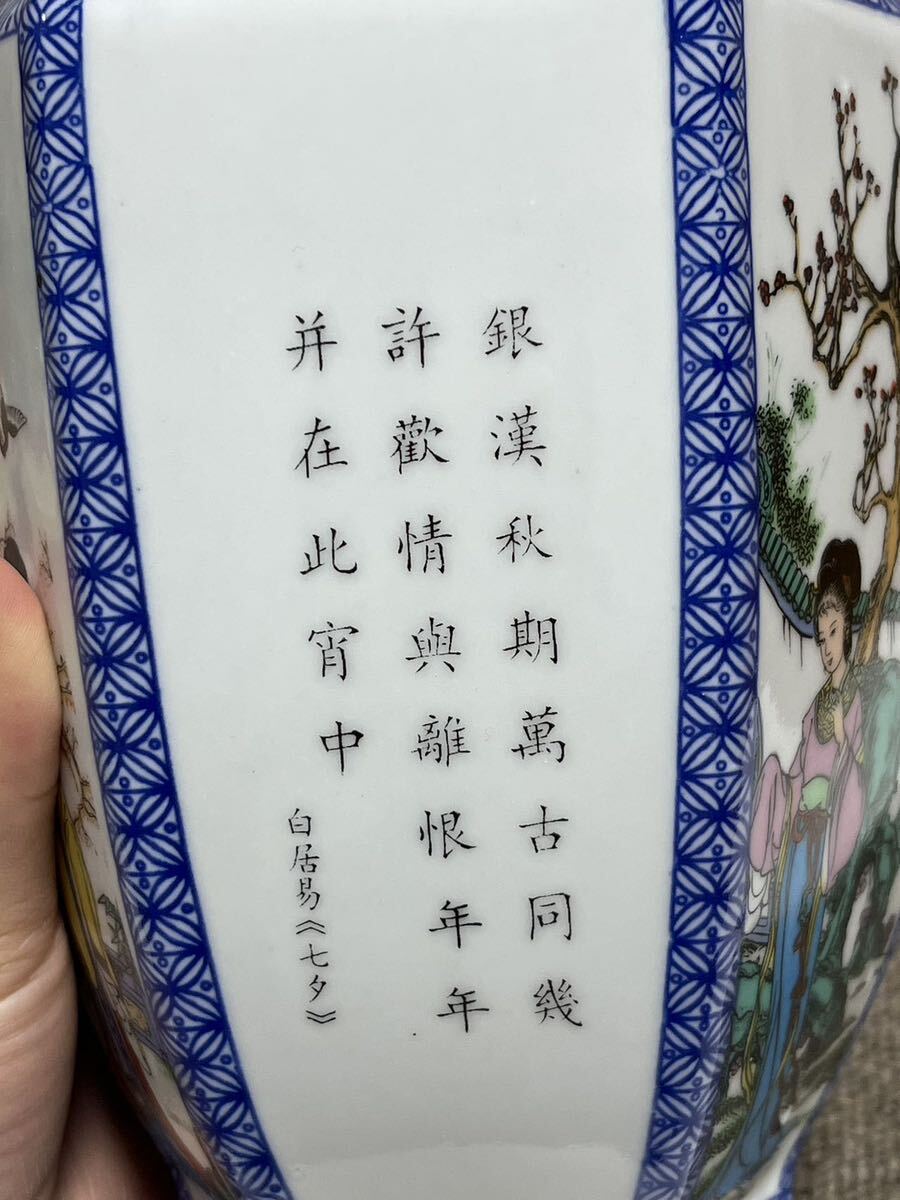 銀漢秋期萬古同幾
許歡情與離恨年年
并在此宵中
白居易《七夕》